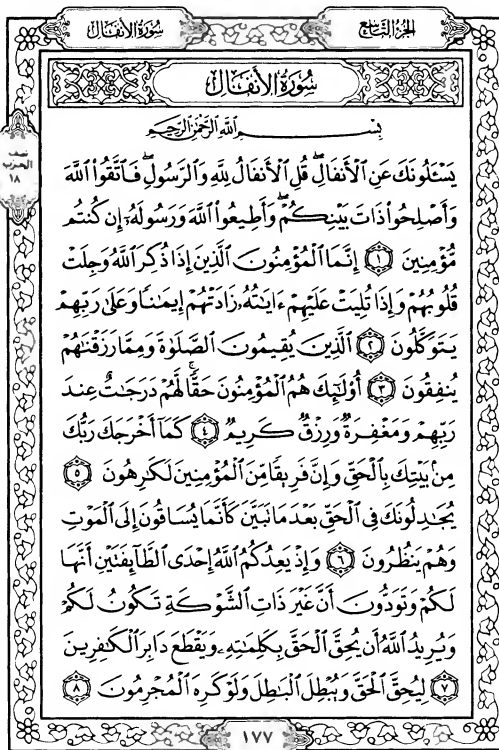 الجزء التاسع
سورة الأنفال
سُورَةُ الأَنفَالِ
نصف
الحزب
١٨
بِسْمِ اللَّهِ الرَّحْمَٰنِ الرَّحِيمِ
يَسْـَٔلُونَكَ عَنِ ٱلْأَنفَالِ ۖ قُلِ ٱلْأَنفَالُ لِلَّهِ وَٱلرَّسُولِ ۖ فَٱتَّقُوا۟ ٱللَّهَ
وَأَصْلِحُوا۟ ذَاتَ بَيْنِكُمْ ۖ وَأَطِيعُوا۟ ٱللَّهَ وَرَسُولَهُۥٓ إِن كُنتُم
مُّؤْمِنِينَ ١ إِنَّمَا ٱلْمُؤْمِنُونَ ٱلَّذِينَ إِذَا ذُكِرَ ٱللَّهُ وَجِلَتْ
قُلُوبُهُمْ وَإِذَا تُلِيَتْ عَلَيْهِمْ ءَايَـٰتُهُۥ زَادَتْهُمْ إِيمَـٰنًا وَعَلَىٰ رَبِّهِمْ
يَتَوَكَّلُونَ ٢ ٱلَّذِينَ يُقِيمُونَ ٱلصَّلَوٰةَ وَمِمَّا رَزَقْنَـٰهُمْ
يُنفِقُونَ ٣ أُو۟لَـٰٓئِكَ هُمُ ٱلْمُؤْمِنُونَ حَقًّا ۚ لَّهُمْ دَرَجَـٰتٌ عِندَ
رَبِّهِمْ وَمَغْفِرَةٌ وَرِزْقٌ كَرِيمٌ ٤ كَمَآ أَخْرَجَكَ رَبُّكَ
مِنۢ بَيْتِكَ بِٱلْحَقِّ وَإِنَّ فَرِيقًا مِّنَ ٱلْمُؤْمِنِينَ لَكَـٰرِهُونَ ٥
يُجَـٰدِلُونَكَ فِى ٱلْحَقِّ بَعْدَ مَا تَبَيَّنَ كَأَنَّمَا يُسَاقُونَ إِلَى ٱلْمَوْتِ
وَهُمْ يَنظُرُونَ ٦ وَإِذْ يَعِدُكُمُ ٱللَّهُ إِحْدَى ٱلطَّآئِفَتَيْنِ أَنَّهَا
لَكُمْ وَتَوَدُّونَ أَنَّ غَيْرَ ذَاتِ ٱلشَّوْكَةِ تَكُونُ لَكُمْ
وَيُرِيدُ ٱللَّهُ أَن يُحِقَّ ٱلْحَقَّ بِكَلِمَـٰتِهِۦ وَيَقْطَعَ دَابِرَ ٱلْكَـٰفِرِينَ
٧ لِيُحِقَّ ٱلْحَقَّ وَيُبْطِلَ ٱلْبَـٰطِلَ وَلَوْ كَرِهَ ٱلْمُجْرِمُونَ ٨
١٧٧